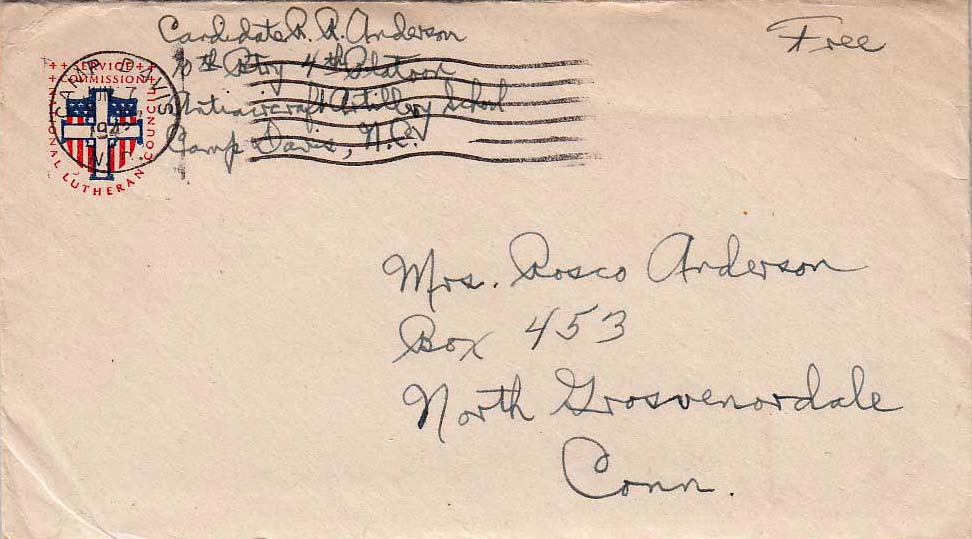 Candidate R. A. Anderson
10th Btry 4th Platoon
Antiaircraft Artillery School
Camp Davis, N.C.
Free
SERVICE
COMMISSION
NATIONAL LUTHERAN COUNCIL
CAMP DAVIS
JUN 7
N.C.
Mrs. Rosco Anderson
Box 453
North Grosvenordale
Conn.